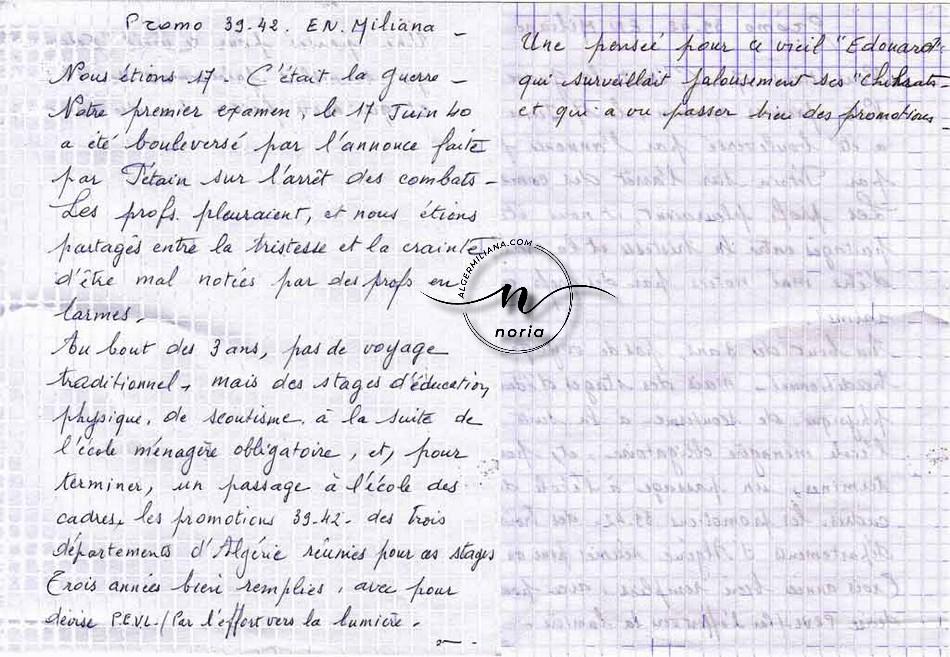 Promo 39.42. EN. Miliana -
Nous étions 17. C'était la guerre -
Notre premier examen, le 17 Juin 40
a été bouleversé par l'annonce faite
par Pétain sur l'arrêt des combats -
Les profs. pleuraient, et nous étions
partagés entre la tristesse et la crainte
d'être mal notées par des profs en
larmes.
Au bout des 3 ans, pas de voyage
traditionnel, mais des stages d'éducation
physique, de scoutisme, à la suite de
l'école ménagère obligatoire, et, pour
terminer, un passage à l'école des
cadres, les promotions 39-42. des trois
départements d'Algérie réunies pour ces stages
Trois années bien remplies, avec pour
devise P.E.V.L. / Par l'effort vers la lumière.
Une pensée pour ce vieil "Edouard"
qui surveillait jalousement ses
et qui a vu passer bien des promotions
ALGERMILIANA.COM
n
noria